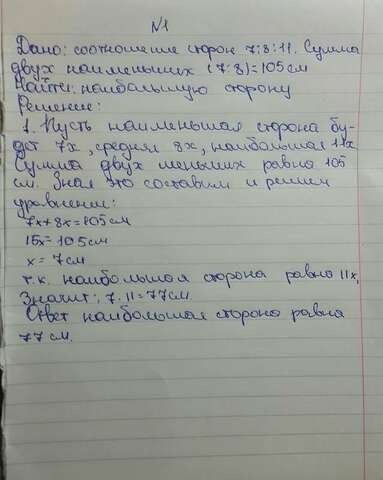 №1
Дано: соотношение сторон 7:8:11. Сумма
двух наименьших (7:8)=105см
Найти: наибольшую сторону
Решение:
1. Пусть наименьшая сторона бу-
дет 7х, средняя 8х, наибольшая 11х
Сумма двух меньших равна 105
см. Зная это составим и решим
уравнение:
7х+8х=105см
15х=105см
х=7см
т.к. наибольшая сторона равна 11х,
Значит: 7·11=77см.
Ответ наибольшая сторона равна
77см.